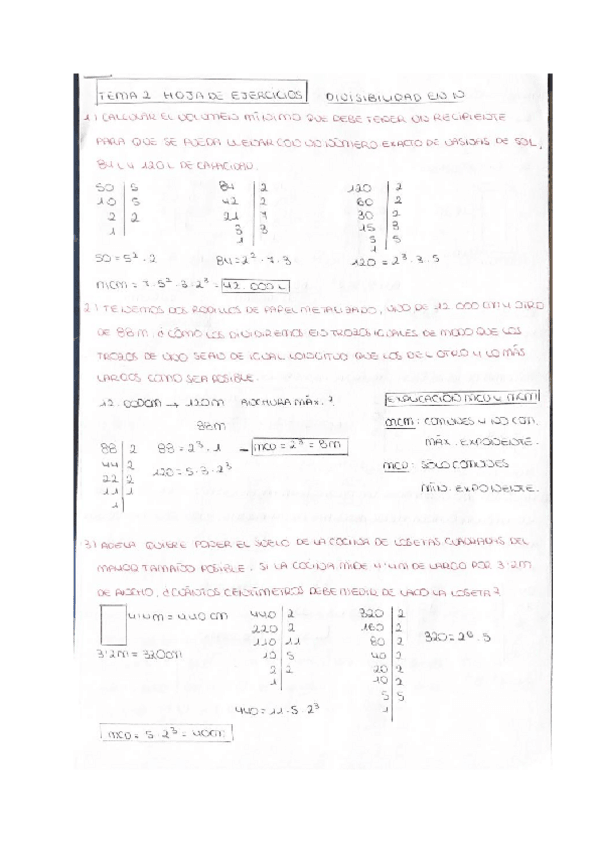 TEMA 2 HOJA DE EJERCICIOS DIVISIBILIDAD EN N
1) CALCULAR EL VOLUMEN MÍNIMO QUE DEBE TENER UN RECIPIENTE
PARA QUE SE PUEDA LLENAR CON UN NÚMERO EXACTO DE VASIJAS DE 50L,
84L Y 120L DE CAPACIDAD.
50 | 5 84 | 2 120 | 2
10 | 5 42 | 2 60 | 2
2 | 2 21 | 7 30 | 2
1 3 | 3 15 | 3
1 5 | 5
1
50 = 5² · 2 84 = 2² · 7 · 3 120 = 2³ · 3 · 5
mcm = 7 · 5² · 3 · 2³ = 42.000 L
2) TENEMOS DOS RODILLOS DE PAPEL METALIZADO, UNO DE 12 000 cm Y OTRO
DE 88 m. ¿CÓMO LOS DIVIDIREMOS EN TROZOS IGUALES DE MODO QUE LOS
TROZOS DE UNO SEAN DE IGUAL LONGITUD QUE LOS DEL OTRO Y LO MÁS
LARGOS COMO SEA POSIBLE.
12.000cm → 120m ANCHURA MÁX.?
88m
88 | 2 88 = 2³ · 1 - MCD = 2³ = 8m
44 | 2 120 = 5 · 3 · 2³
22 | 2
11 | 1
1
EXPLICACIÓN MCD Y MCM
MCM: COMUNES Y NO COM.
MÁX. EXPONENTE.
MCD: SOLO COMUNES
MÍN. EXPONENTE.
3) ADELA QUIERE PONER EL SUELO DE LA COCINA DE LOSETAS CUADRADAS DEL
MAYOR TAMAÑO POSIBLE. SI LA COCINA MIDE 4'4m DE LARGO POR 3'2m
DE ANCHO, ¿CUÁNTOS CENTÍMETROS DEBE MEDIR DE LADO LA LOSETA?
4'4m = 440 cm 440 | 2 320 | 2
220 | 2 160 | 2
110 | 11 80 | 2 320 = 2⁶ · 5
3'2m = 320cm 10 | 5 40 | 2
2 | 2 20 | 2
1 10 | 2
5 | 5
440 = 11 · 5 · 2³ 1
MCD = 5 · 2³ = 40cm